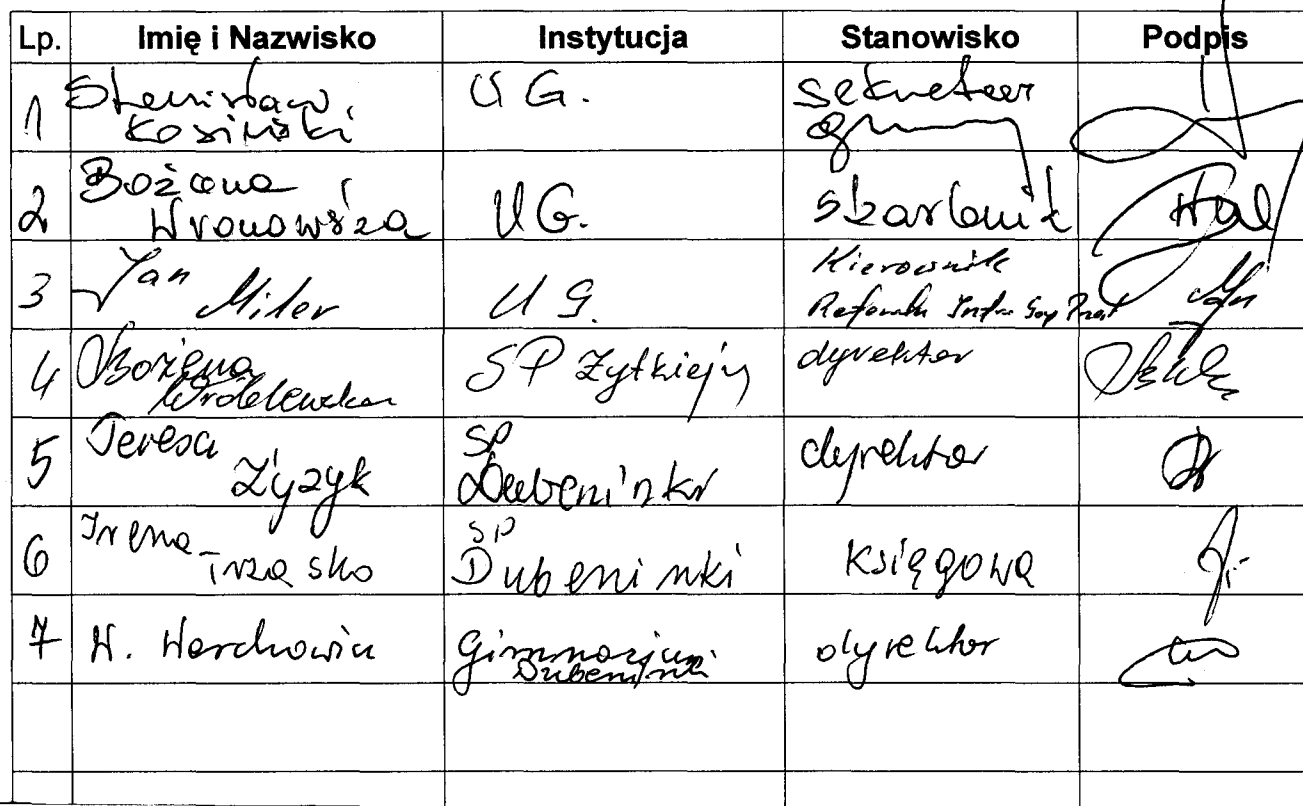 Lp. Imię i Nazwisko Instytucja Stanowisko Podpis
1 Stanisław Kosiński U G. sekretarz gminy
2 Bożena Wronowska U G. skarbnik
3 Jan Miler U G. Kierownik
4 Bożena Wróblewska SP Żytkiejmy dyrektor
5 Teresa Zyzyk SP Dubeninki dyrektor
6 Irena Trzasko SP Dubeninki księgowa
7 W. Gimnazjum Dubeninki dyrektor